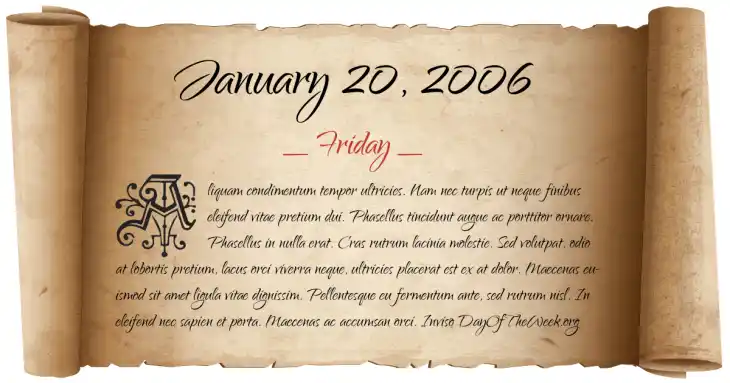 January 20, 2006
_ Friday _
Aliquam condimentum tempor ultricies. Nam nec turpis ut neque finibus
eleifend vitae pretium dui. Phasellus tincidunt augue ac porttitor ornare.
Phasellus in nulla erat. Cras rutrum lacinia molestie. Sed volutpat, odio
at lobortis pretium, lacus orci viverra neque, ultricies placerat est ex at dolor. Maecenas eu-
ismod sit amet ligula vitae dignissim. Pellentesque eu fermentum ante, sed rutrum nisl. In
eleifend nec sapien et porta. Maecenas ac accumsan orci. Invisq DayOfTheWeek.org